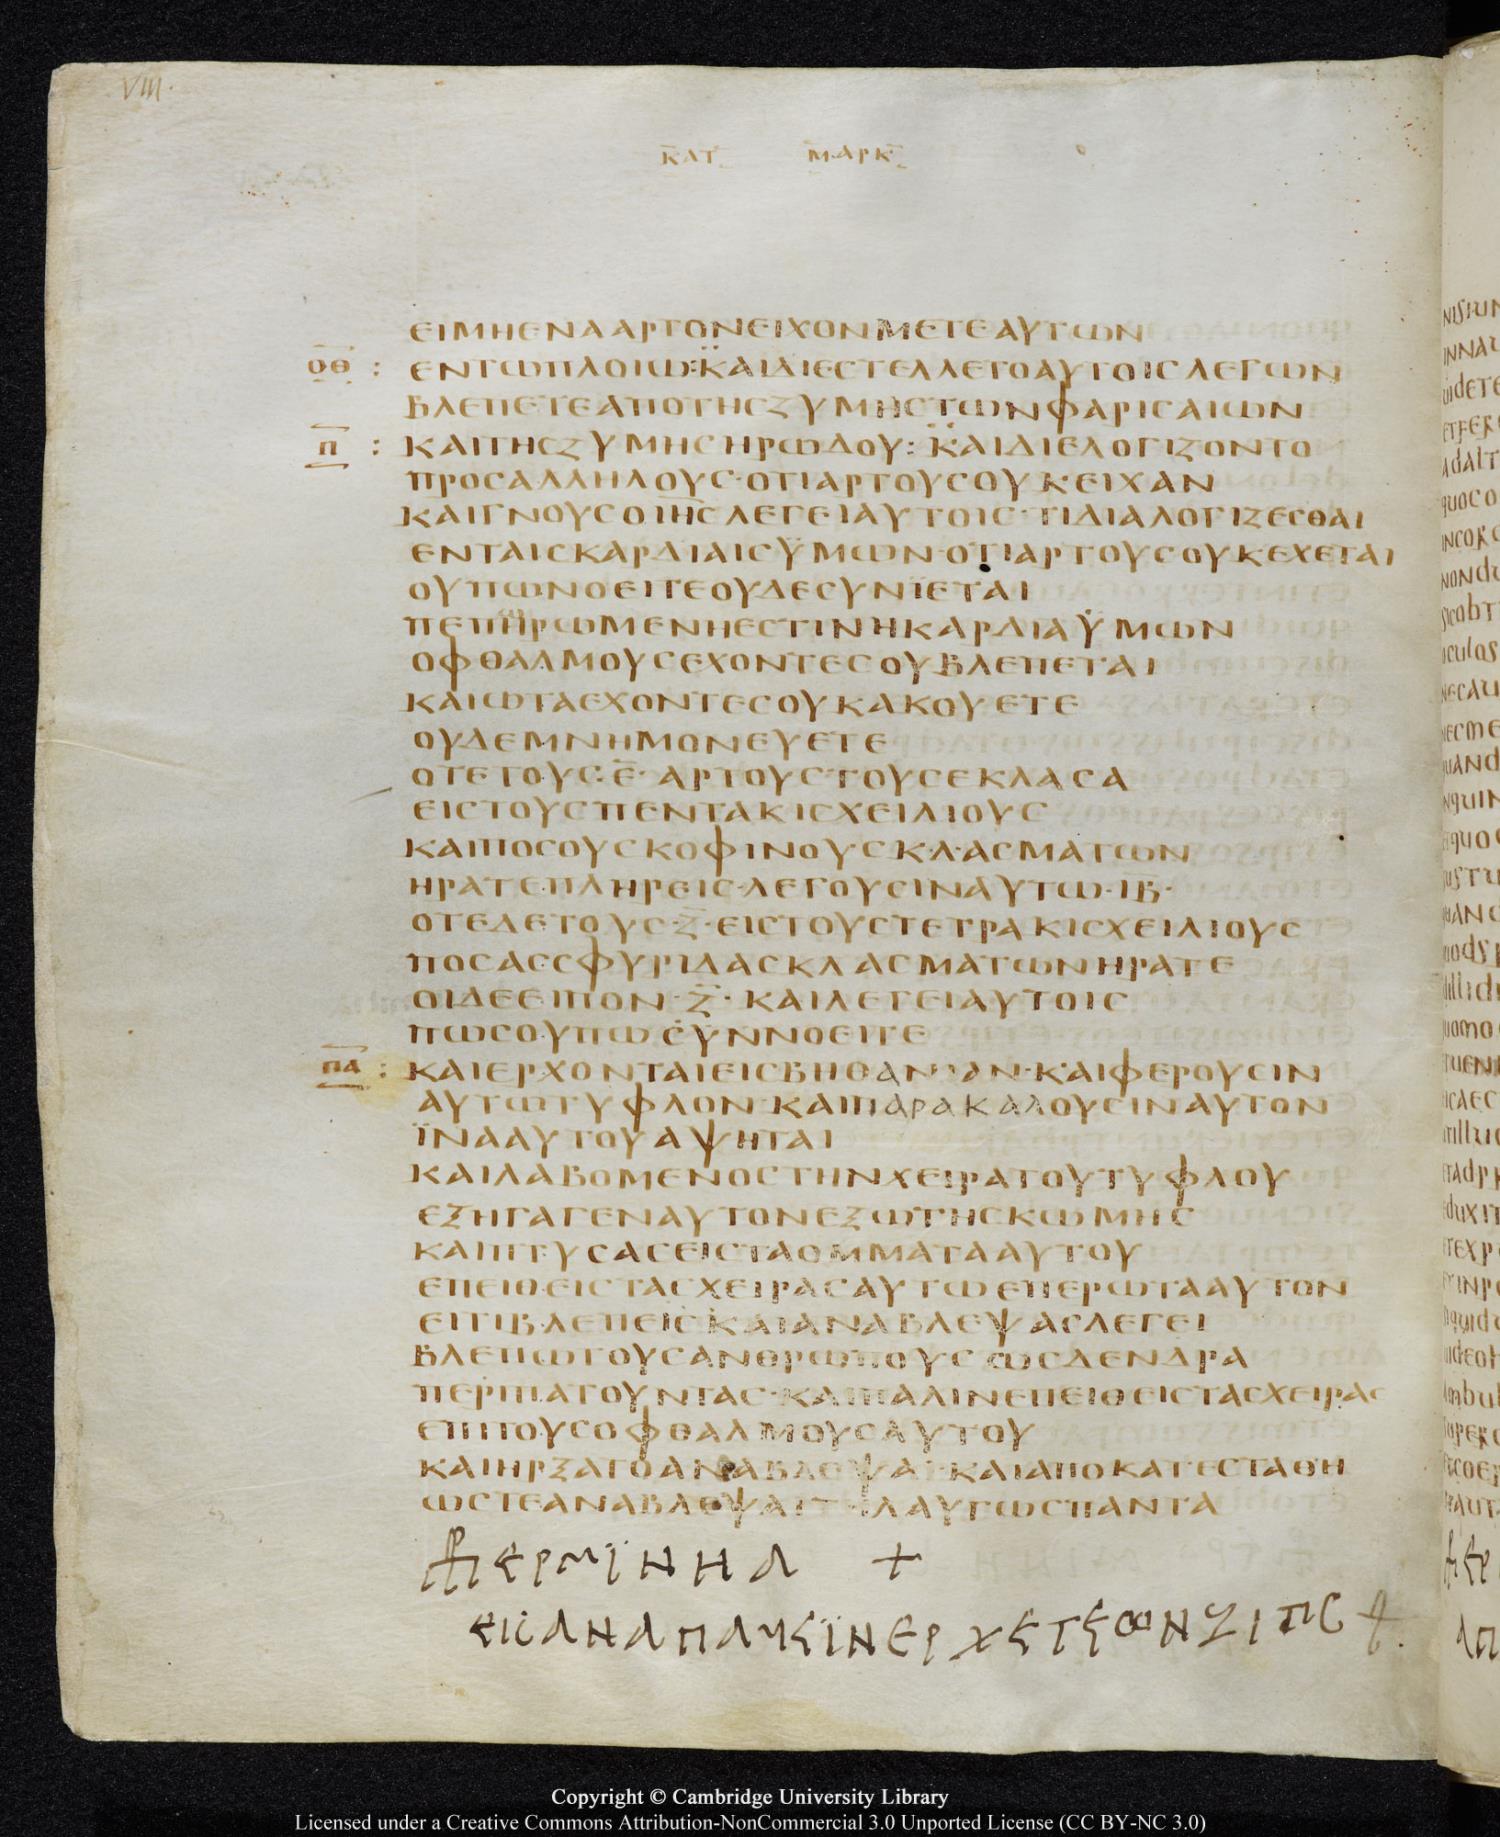 VIII.
ΚΑΤ ΜΑΡΚ
ΕΙΜΗΕΝΑΑΡΤΟΝΕΙΧΟΝΜΕΤΕΑΥΤΩΝ
ΟΘ : ΕΝΤΩΠΛΟΙΩ:ΚΑΙΔΙΕϹΤΕΛΛΕΤΟΑΥΤΟΙϹΛΕΓΩΝ
ΒΛΕΠΕΤΕΑΠΟΤΗϹΖΥΜΗϹΤΩΝΦΑΡΙϹΑΙΩΝ
Π : ΚΑΙΤΗϹΖΥΜΗϹΗΡΩΔΟΥ: ΚΑΙΔΙΕΛΟΓΙΖΟΝΤΟ
ΠΡΟϹΑΛΛΗΛΟΥϹ·ΟΤΙΑΡΤΟΥϹΟΥΚΕΙΧΑΝ
ΚΑΙΓΝΟΥϹΟΙΗϹΛΕΓΕΙΑΥΤΟΙϹ·ΤΙΔΙΑΛΟΓΙΖΕϹΘΑΙ
ΕΝΤΑΙϹΚΑΡΔΙΑΙϹΫΜΩΝ·ΟΤΙΑΡΤΟΥϹΟΥΚΕΧΕΤΑΙ
ΟΥΠΩΝΟΕΙΤΕΟΥΔΕϹΥΝΪΕΤΑΙ
ΠΕΠΗΡΩΜΕΝΗΕϹΤΙΝΗΚΑΡΔΙΑΫΜΩΝ
ΟΦΘΑΛΜΟΥϹΕΧΟΝΤΕϹΟΥΒΛΕΠΕΤΑΙ
ΚΑΙΩΤΑΕΧΟΝΤΕϹΟΥΚΑΚΟΥΕΤΕ
ΟΥΔΕΜΝΗΜΟΝΕΥΕΤΕ
ΟΤΕΤΟΥϹ·Ε̅·ΑΡΤΟΥϹ·ΤΟΥϹΕΚΛΑϹΑ
ΕΙϹΤΟΥϹΠΕΝΤΑΚΙϹΧΕΙΛΙΟΥϹ
ΚΑΙΠΟϹΟΥϹΚΟΦΙΝΟΥϹΚΛΑϹΜΑΤΩΝ
ΗΡΑΤΕΠΛΗΡΕΙϹ·ΛΕΓΟΥϹΙΝΑΥΤΩ·ΙΒ·
ΟΤΕΔΕΤΟΥϹ·Ζ̅·ΕΙϹΤΟΥϹΤΕΤΡΑΚΙϹΧΕΙΛΙΟΥϹ
ΠΟϹΑϹϹΦΥΡΙΔΑϹΚΛΑϹΜΑΤΩΝΗΡΑΤΕ
ΟΙΔΕΕΙΠΟΝ·Ζ̅·ΚΑΙΛΕΓΕΙΑΥΤΟΙϹ
ΠΩϹΟΥΠΩϹΥΝΝΟΕΙΤΕ
ΠΑ : ΚΑΙΕΡΧΟΝΤΑΙΕΙϹΒΗΘΑΝΙΑΝ·ΚΑΙΦΕΡΟΥϹΙΝ
ΑΥΤΩΤΥΦΛΟΝ·ΚΑΙΠΑΡΑΚΑΛΟΥϹΙΝΑΥΤΟΝ
ΪΝΑΑΥΤΟΥΑΨΗΤΑΙ
ΚΑΙΛΑΒΟΜΕΝΟϹΤΗΝΧΕΙΡΑΤΟΥΤΥΦΛΟΥ
ΕΞΗΓΑΓΕΝΑΥΤΟΝΕΞΩΤΗϹΚΩΜΗϹ
ΚΑΙΠΤΥϹΑϹΕΙϹΤΑΟΜΜΑΤΑΑΥΤΟΥ
ΕΠΕΙΘΕΙϹΤΑϹΧΕΙΡΑϹΑΥΤΩΕΠΕΡΩΤΑΑΥΤΟΝ
ΕΙΤΙΒΛΕΠΕΙϹΚΑΙΑΝΑΒΛΕΨΑϹΛΕΓΕΙ
ΒΛΕΠΩΤΟΥϹΑΝΘΡΩΠΟΥϹΩϹΔΕΝΔΡΑ
ΠΕΡΙΠΑΤΟΥΝΤΑϹ·ΚΑΙΠΑΛΙΝΕΠΕΙΘΕΙϹΤΑϹΧΕΙΡΑϹ
ΕΠΙΤΟΥϹΟΦΘΑΛΜΟΥϹΑΥΤΟΥ
ΚΑΙΗΡΞΑΤΟΑΝΑΒΛΕΨΑΙ·ΚΑΙΑΠΟΚΑΤΕϹΤΑΘΗ
ΩϹΤΕΑΝΑΒΛΕΨΑΙΤΗΛΑΥΓΩϹΠΑΝΤΑ
ΕΡΜΪΝΗΑ +
ΕΙϹΑΝΑΠΑΥϹΪΝΕΡΧΕΤΕ
Copyright © Cambridge University Library
Licensed under a Creative Commons Attribution-NonCommercial 3.0 Unported License (CC BY-NC 3.0)